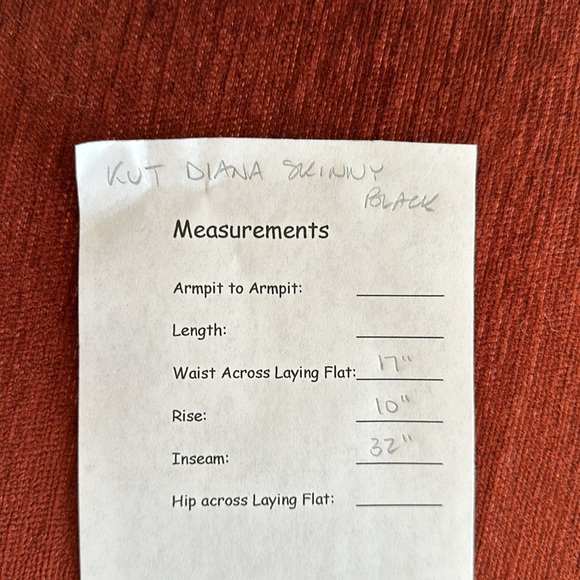 KUT DIANA SKINNY
BLACK
Measurements
Armpit to Armpit:
Length:
Waist Across Laying Flat: 17"
Rise: 10"
Inseam: 32"
Hip across Laying Flat: